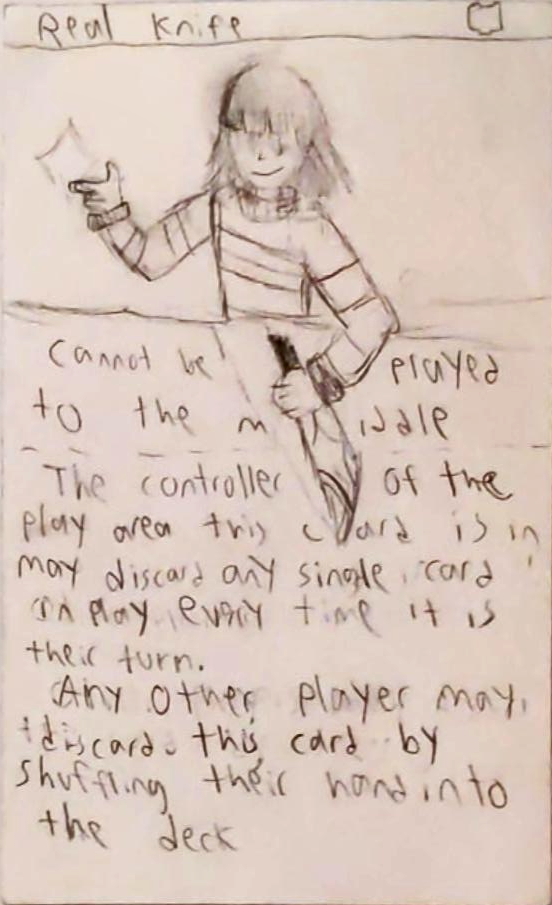 Real Knife
Cannot be played
to the middle
The controller of the
play area this card is in
may discard any single card
in play every time it is
their turn.
Any other player may
discard this card by
shuffling their hand into
the deck